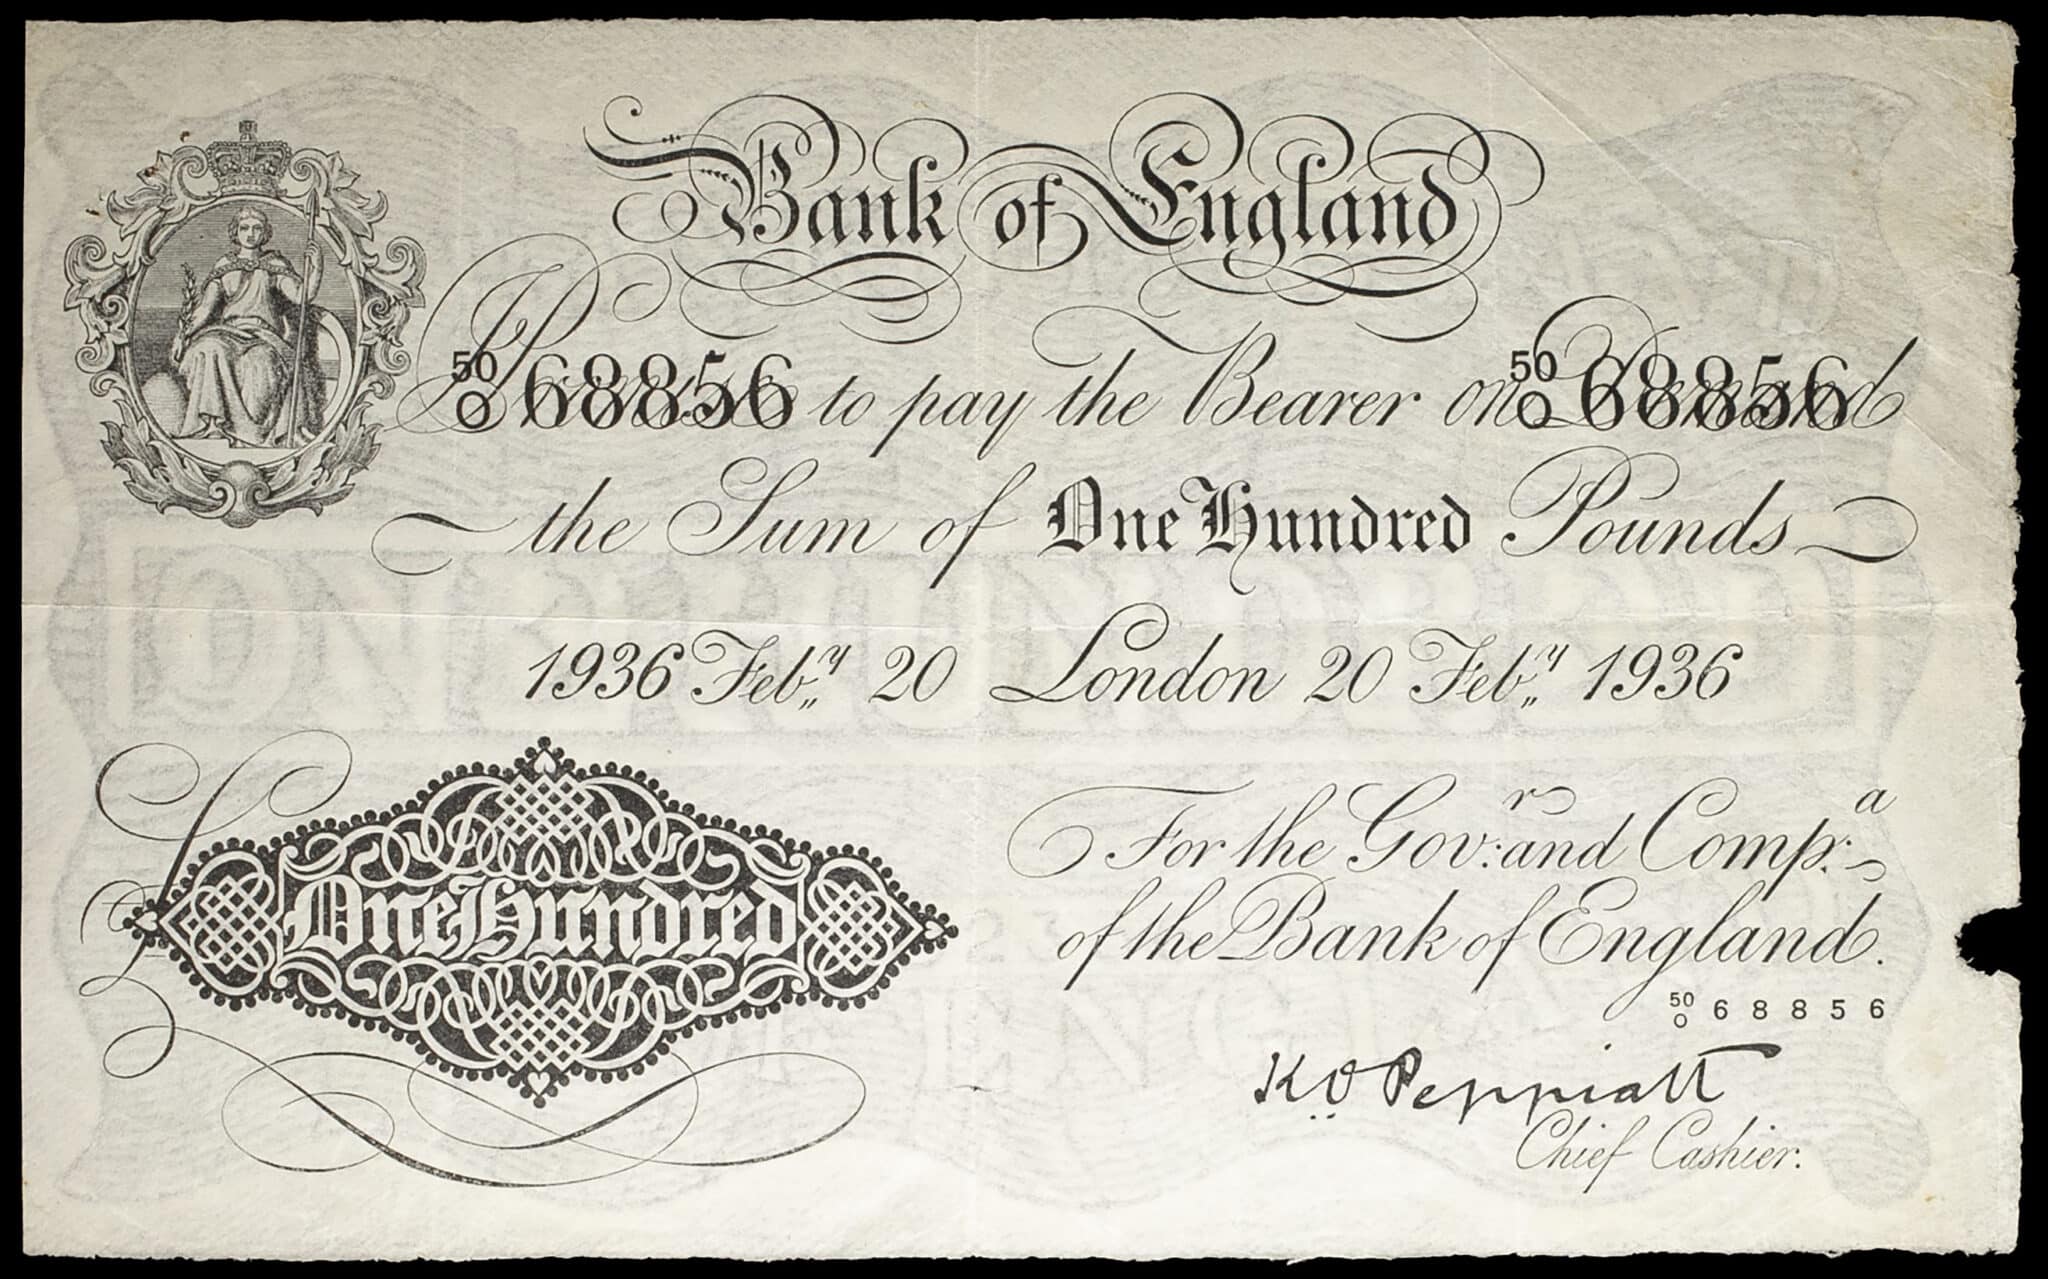 Bank of England
I Promise to pay the Bearer on Demand
50/O 68856 50/O 68856
the Sum of One Hundred Pounds
1936 Feb.y 20 London 20 Feb.y 1936
For the Gov:r and Comp:a
of the Bank of England.
£ One Hundred
50/O 68856
K.O. Peppiatt
Chief Cashier.